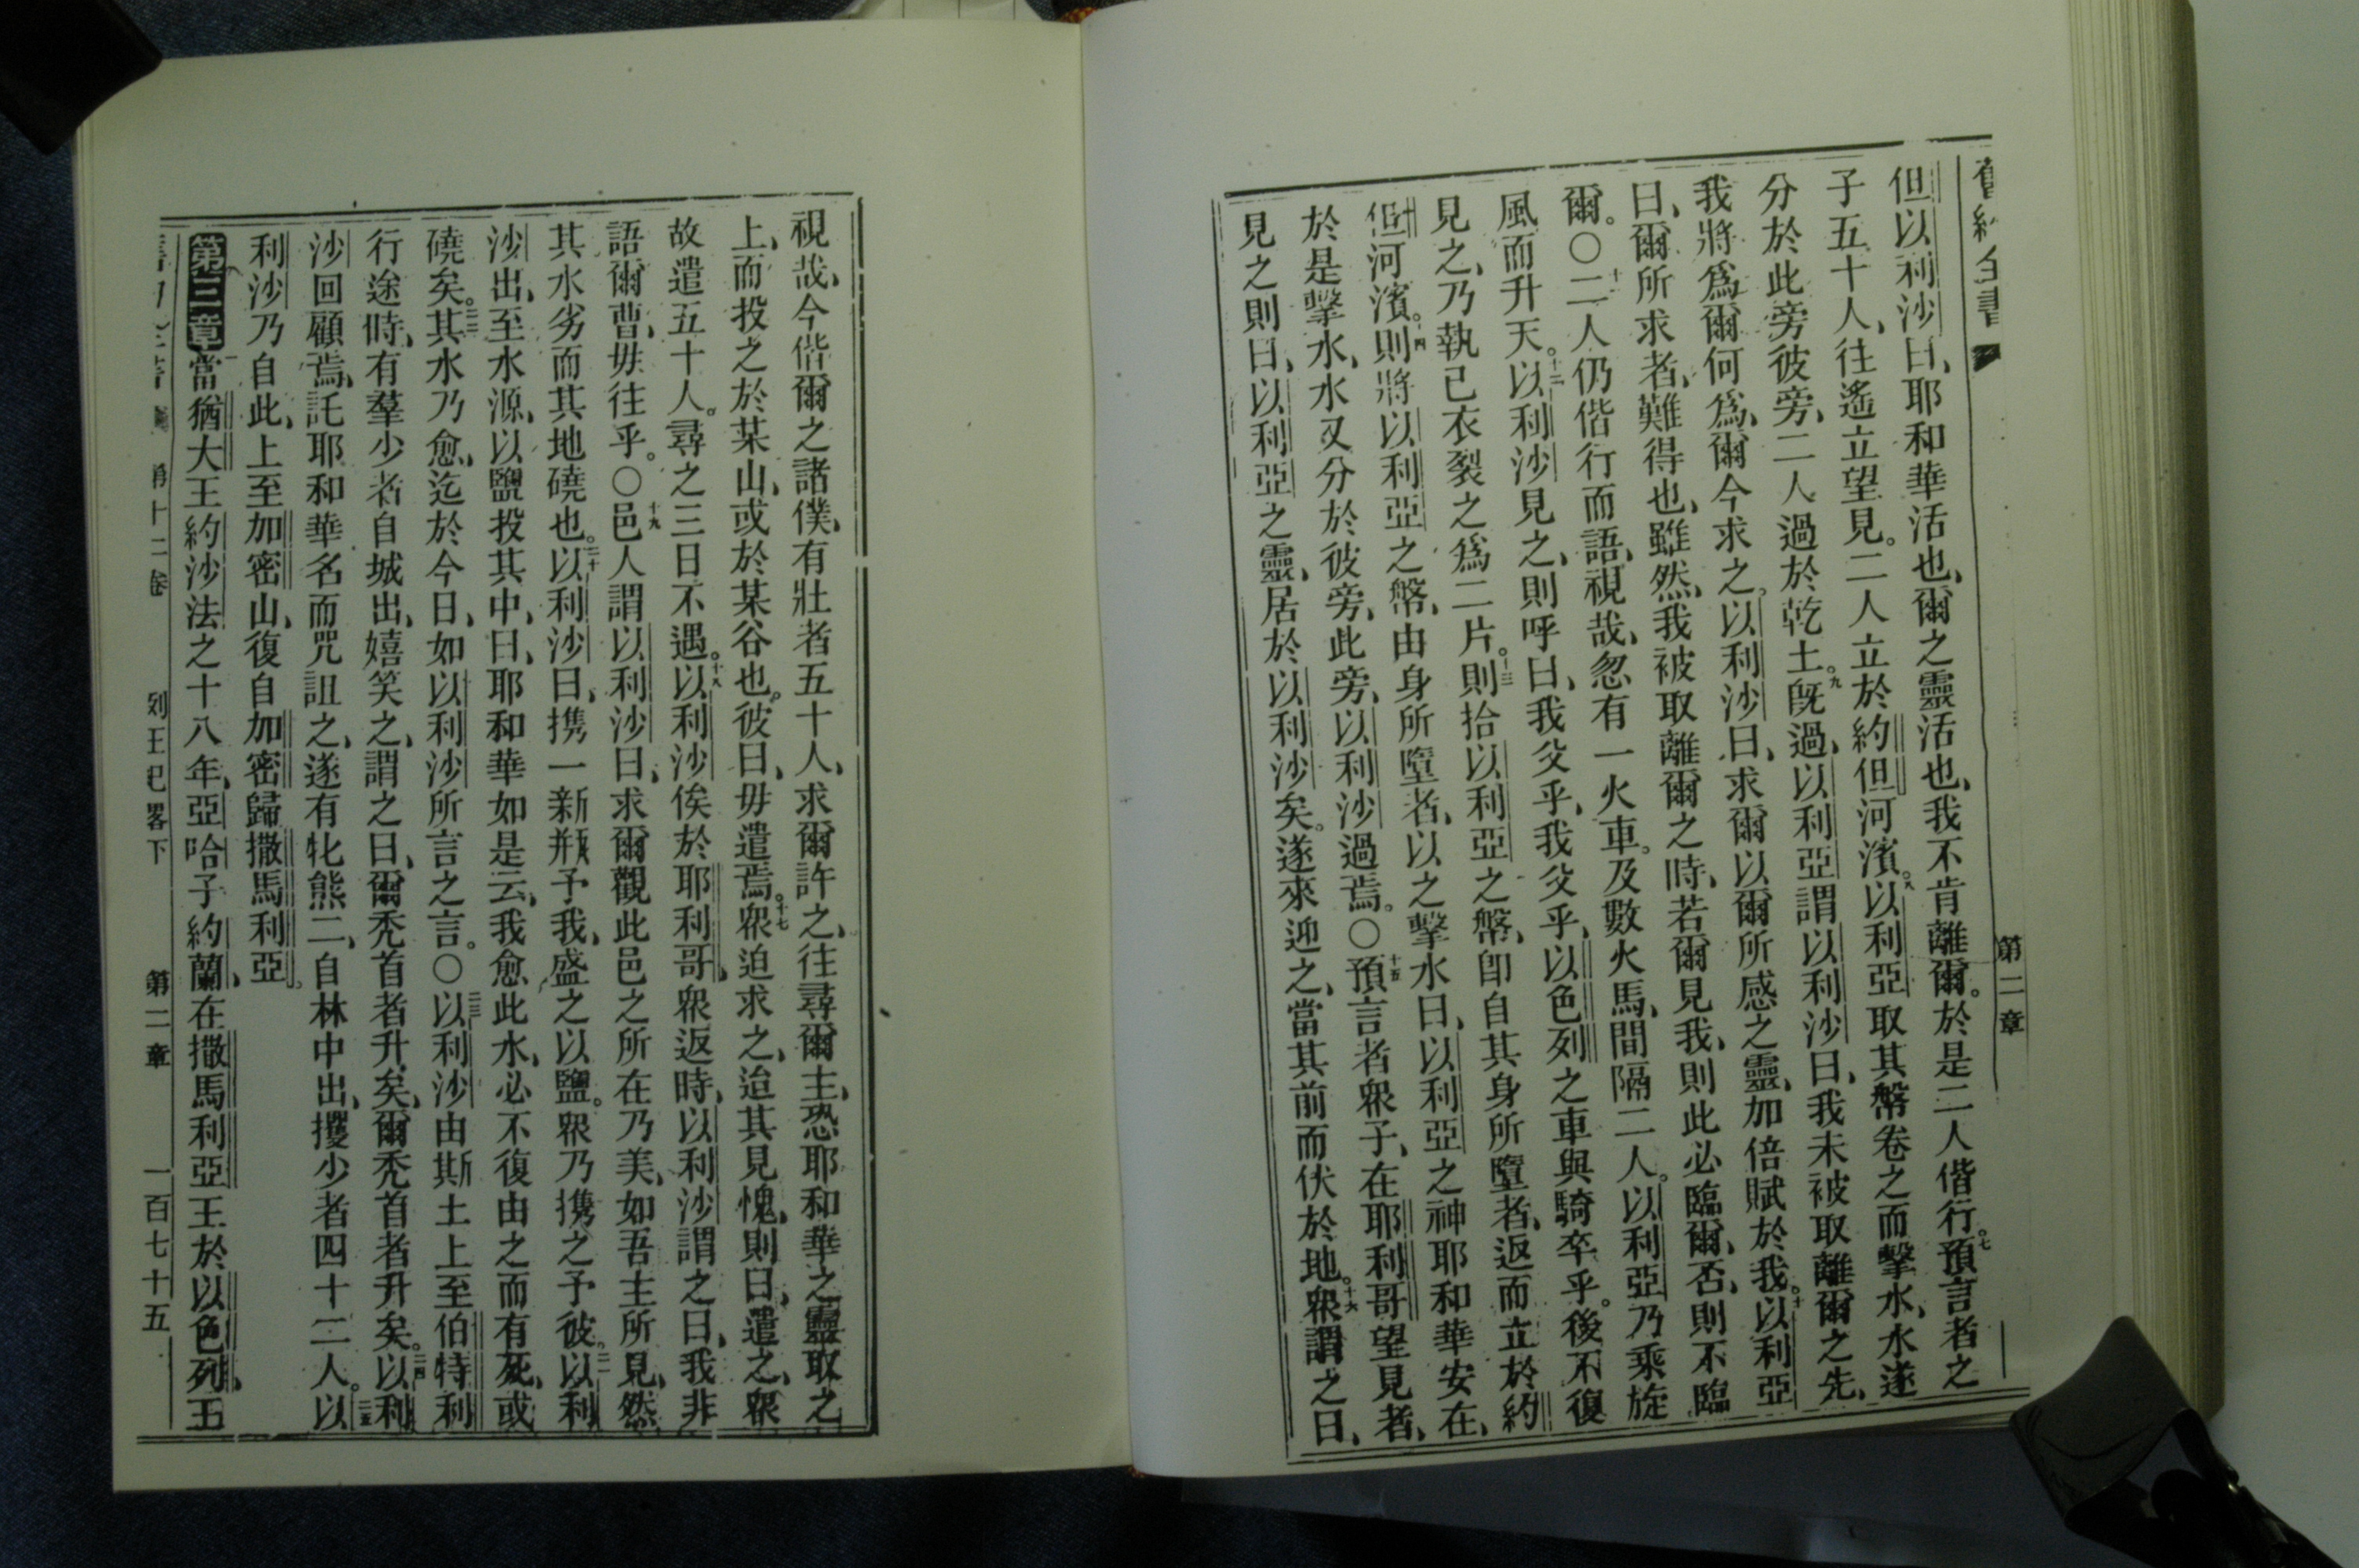 舊約全書
第二章
但以利沙曰、耶和華活也、爾之靈活也、我不肯離爾。於是二人偕行。七預言者之
子五十人、往遙立望見。二人立於約但河濱。八以利亞取其槃卷之而擊水、水遂
分於此旁彼旁、二人過於乾土。九旣過、以利亞謂以利沙曰、我未被取離爾之先、
我將爲爾何爲、爾今求之。以利沙曰、求爾以爾所感之靈、加倍賦於我。十以利亞
曰、爾所求者、難得也、雖然、我被取離爾之時、若爾見我、則此必臨爾、否、則不臨
爾。〇十一二人仍偕行而語、視哉、忽有一火車。及數火馬、間隔二人。以利亞乃乘旋
風而升天。十二以利沙見之、則呼曰、我父乎、我父乎、以色列之車與騎卒乎。後不復
見之、乃執己衣裂之爲二片。十三則拾以利亞之槃、卽自其身所墮者、返而立於約
但河濱。十四則將以利亞之槃、由身所墮者、以之擊水曰、以利亞之神耶和華安在、
於是擊水、水又分於彼旁、此旁、以利沙過焉。〇十五預言者衆子、在耶利哥望見者、
見之則曰、以利亞之靈、居於以利沙矣。遂來迎之、當其前而伏於地。十六衆謂之曰、
視哉、今偕爾之諸僕、有壯者五十人、求爾許之、往尋爾主、恐耶和華之靈取之
上、而投之於某山、或於某谷也。彼曰、毋遣焉。十七衆迫求之、迨其見愧、則曰、遣之、衆
故遣五十人。尋之三日不遇。十八以利沙俟於耶利哥、衆返時、以利沙謂之曰、我非
語爾曹、毋往乎。〇十九邑人謂以利沙曰、求爾觀此邑之所在乃美、如吾主所見、然
其水劣而其地磽也。二十以利沙曰、携一新瓶予我、盛之以鹽。衆乃携之予彼。二一以利
沙出、至水源、以鹽投其中、曰、耶和華如是云、我愈此水、必不復由之而有死、或
磽矣。二二其水乃愈、迄於今日、如以利沙所言之言。〇二三以利沙由斯土上至伯特利
行途時、有羣少者自城出、嬉笑之、謂之曰、爾禿首者升矣、爾禿首者升矣。二四以利
沙回顧焉、託耶和華名而咒詛之、遂有牝熊二、自林中出、攫少者四十二人。二五以
利沙乃自此、上至加密山、復自加密歸撒馬利亞。
第三章當猶大王約沙法之十八年、亞哈子約蘭、在撒馬利亞王於以色列、王
第十二卷 列王紀畧下 第二章 一百七十五